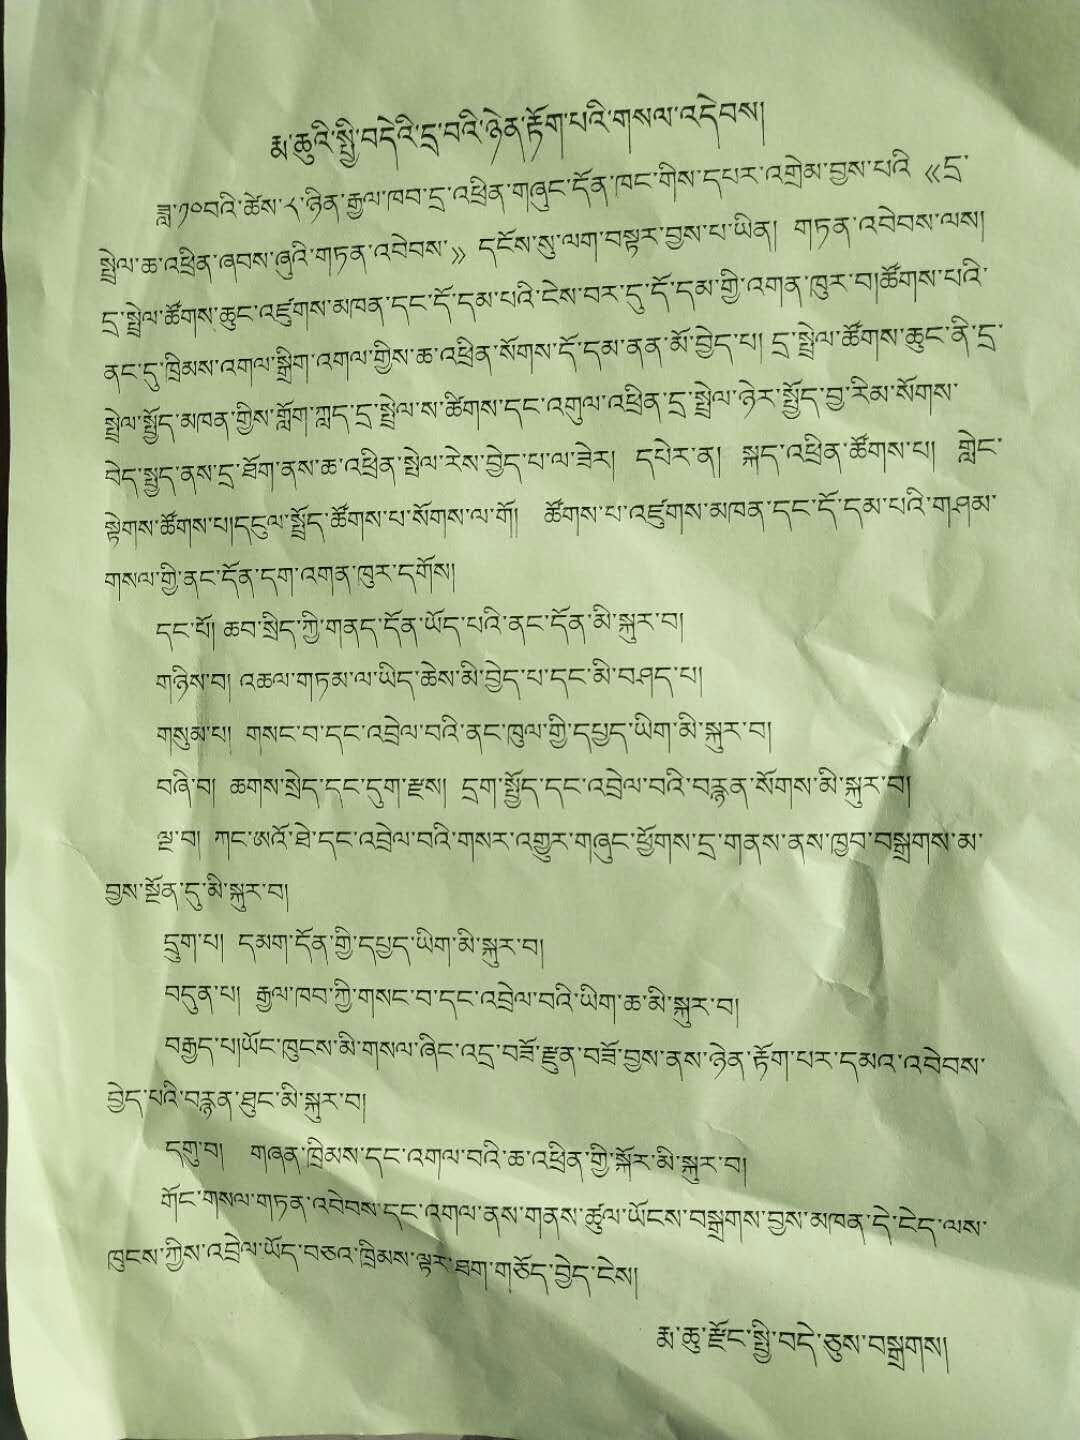 རྨ་ཆུའི་སྤྱི་བདེའི་དྲ་བའི་ཉེན་རྟོག་པའི་གསལ་འདེབས།
ཟླ་༡༠བའི་ཚེས་༨་ཉིན་རྒྱལ་ཁབ་དྲ་འཕྲིན་གཞུང་དོན་ཁང་གིས་དཔར་འགྲེམ་བྱས་པའི 《དྲ་
སྦྲེལ་ཆ་འཕྲིན་ཞབས་ཞུའི་གཏན་འབེབས་》 དངོས་སུ་ལག་བསྟར་བྱས་པ་ཡིན། གཏན་འབེབས་ལས།
དྲ་སྦྲེལ་ཚོགས་ཆུང་འཛུགས་མཁན་དང་དོ་དམ་པའི་ངེས་བར་དུ་དོ་དམ་གྱི་འགན་ཁུར་བ།ཚོགས་པའི་
ནང་དུ་ཁྲིམས་འགལ་སྒྲིག་འགལ་གྱིས་ཆ་འཕྲིན་སོགས་དོ་དམ་ནན་མོ་བྱེད་པ། དྲ་སྦྲེལ་ཚོགས་ཆུང་ནི་དྲ་
སྦྲེལ་སྤྱོད་མཁན་གྱིས་གློག་ཀླད་དྲ་སྦྲེལ་ས་ཚིགས་དང་འགུལ་འཕྲིན་དྲ་སྦྲེལ་ཉེར་སྤྱོད་བྱ་རིམ་སོགས་
བེད་སྤྱད་ནས་དྲ་ཐོག་ནས་ཆ་འཕྲིན་སྤེལ་རེས་བྱེད་པ་ལ་ཟེར། དཔེར་ན། སྐད་འཕྲིན་ཚོགས་པ། གླེང་
སྟེགས་ཚོགས་པ།དངུལ་སྤྲོད་ཚོགས་པ་སོགས་ལ་གོ། ཚོགས་པ་འཛུགས་མཁན་དང་དོ་དམ་པའི་གཤམ་
གསལ་གྱི་ནང་དོན་དག་འགན་ཁུར་དགོས།
དང་པོ། ཆབ་སྲིད་ཀྱི་གནད་དོན་ཡོད་པའི་ནང་དོན་མི་སྐུར་བ།
གཉིས་བ། འཆལ་གཏམ་ལ་ཡིད་ཆེས་མི་བྱེད་པ་དང་མི་བཤད་པ།
གསུམ་པ། གསང་བ་དང་འབྲེལ་བའི་ནང་ཁུལ་གྱི་དཔྱད་ཡིག་མི་སྐུར་བ།
བཞི་བ། ཆགས་སྲེད་དང་དུག་རྫས། དྲག་སྤྱོད་དང་འབྲེལ་བའི་བརྙན་སོགས་མི་སྐུར་བ།
ལྔ་བ། ཀང་ཨའོ་ཐེ་དང་འབྲེལ་བའི་གསར་འགྱུར་གཞུང་ཕྱོགས་དྲ་གནས་ནས་ཁྱབ་བསྒྲགས་མ་
བྱས་སྔོན་དུ་མི་སྐུར་བ།
དྲུག་པ། དམག་དོན་གྱི་དཔྱད་ཡིག་མི་སྐུར་བ།
བདུན་པ། རྒྱལ་ཁབ་ཀྱི་གསང་བ་དང་འབྲེལ་བའི་ཡིག་ཆ་མི་སྐུར་བ།
བརྒྱད་པ།ཡོང་ཁུངས་མི་གསལ་ཞིང་འདྲ་བཟོ་རྫུན་བཟོ་བྱས་ནས་ཉེན་རྟོག་པར་དམའ་འབེབས་
བྱེད་པའི་བརྙན་ཐུང་མི་སྐུར་བ།
དགུ་བ། གཞན་ཁྲིམས་དང་འགལ་བའི་ཆ་འཕྲིན་གྱི་སྐོར་མི་སྐུར་བ།
གོང་གསལ་གཏན་འབེབས་དང་འགལ་ནས་གནས་ཚུལ་ཡོངས་བསྒྲགས་བྱས་མཁན་དེ་ངེད་ལས་
ཁུངས་ཀྱིས་འབྲེལ་ཡོད་བཅའ་ཁྲིམས་ལྟར་ཐག་གཅོད་བྱེད་ངེས།
རྨ་ཆུ་རྫོང་སྤྱི་བདེ་ཅུས་བསྒྲགས།